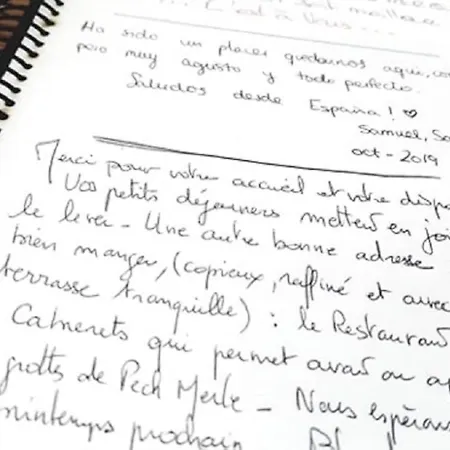 est à vous...
Ha sido un placer quedarnos aquí, co
pero muy agusto y todo perfecto.
Saludos desde España! ♡
Samuel, Sa
oct - 2019
Merci pour votre accueil et votre dispo
Vos petits déjeuners mettent en joi
le lever - Une autre bonne adresse
bien manger, (copieux, raffiné et avec
terrasse tranquille) : le Restaurant
qui permet avant ou a
grottes de Pech Merle - Nous espérons
printemps prochain